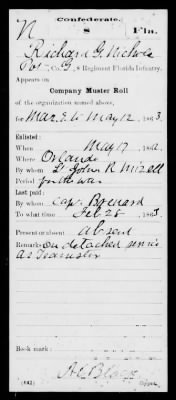 Confederate.
N 8 Fla.
Richard G. Nichols
Pvt, Co. G, 8 Regiment Florida Infantry.
Appears on
Company Muster Roll
of the organization named above,
for Mar & to May 12, 1863.
Enlisted:
When May 17, 1862.
Where Orlando
By whom Lt John R Mizell
Period for the war
Last paid:
By whom Cap.
To what time Feb 28, 1863.
Present or absent Absent
Remarks: On detached service
as Teamster
Book mark:
(642) Copyist.